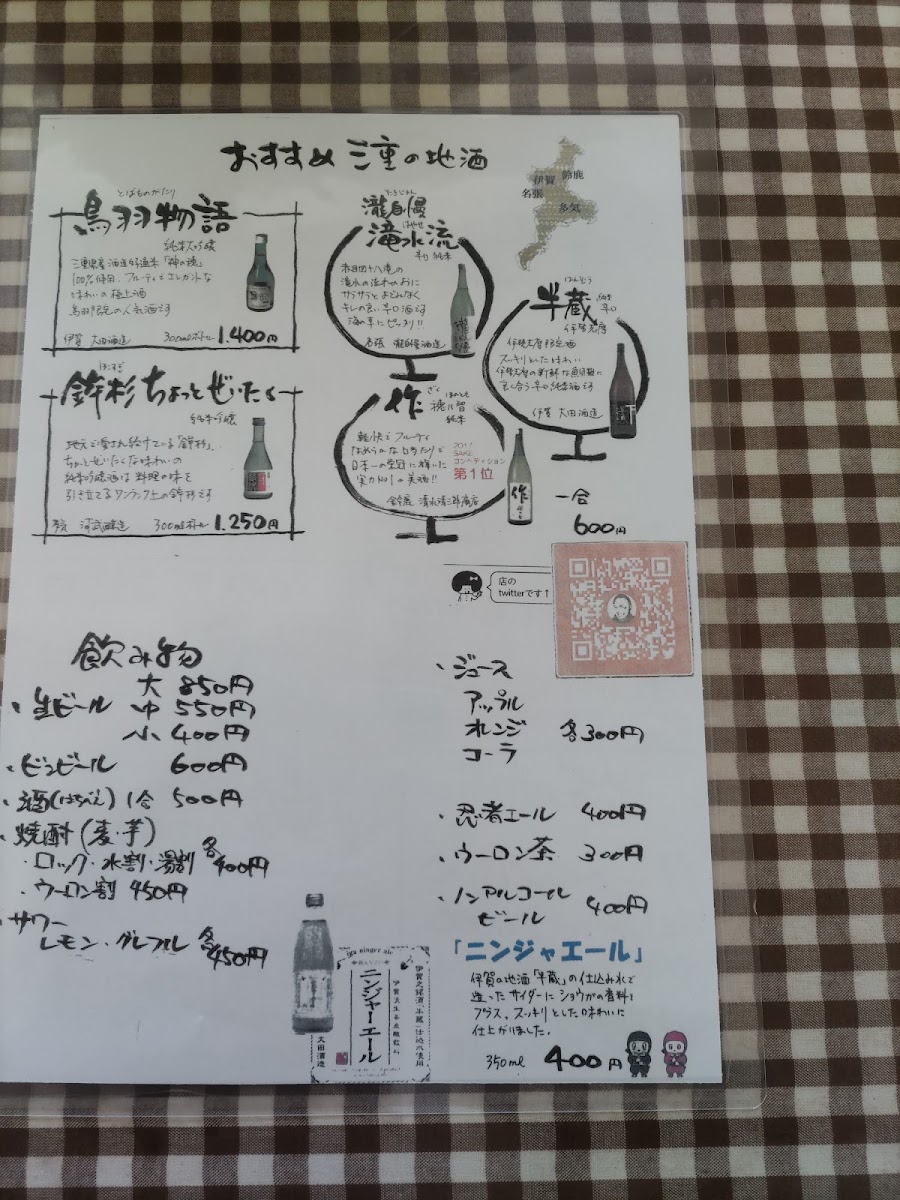 おすすめ 三重の地酒
伊賀 鈴鹿
名張
多気
とばものがたり
鳥羽物語
純米大吟醸
三重県産酒造好適米「神の穂」
100%使用。フルーティでエレガントな
味わいの極上酒
鳥羽院の人気酒です
伊賀 大田酒造 300mlボトル 1,400円
ほこすぎ
鉾杉 ちょっとぜいたく
純米吟醸
地元で愛され続けている「鉾杉」。
ちょっとぜいたくな味わいの
純米吟醸酒は料理の味を
引き立てるワンランク上の鉾杉です
多気 河武醸造 300mlボトル 1,250円
たきじまん
瀧自慢
はやせ
滝水流
辛口 純米
赤目四十八滝の
滝水の流れのように
サラサラとよどみなく
キレの良い辛口酒です
海の幸にピッタリ!!
名張 瀧自慢酒造
はんぞう
半蔵 純米 辛口
伊勢志摩
伊勢志摩限定酒
スッキリとした味わい
伊勢志摩の新鮮な魚貝類に
良く合う辛口純米酒です
伊賀 大田酒造
ざく
作 ほのとも
穂乃智
純米
軽快でフルーティ
なめらかな口あたりで
日本一の栄冠に輝いた
実力No1の美酒!!
2017
SAKE
コンペティション
第1位
鈴鹿 清水清三郎商店
一合
600円
店の
twitterです!
飲み物
・生ビール 大 850円
中 550円
小 400円
・ビンビール 600円
・酒(はちべえ) 1合 500円
・焼酎(麦・芋)
・ロック・水割・湯割 各400円
・ウーロン割 450円
・サワー
レモン・グレフル 各450円
・ジュース
アップル
オレンジ 各300円
コーラ
・忍者エール 400円
・ウーロン茶 300円
・ノンアルコール
ビール 400円
iga ninger ale
ニンジャーエール
伊賀之銘酒「半蔵」仕込水使用
大田酒造
「ニンジャエール」
伊賀の地酒「半蔵」の仕込み水で
造ったサイダーにショウガの香料を
プラス。スッキリとした味わいに
仕上がりました。
350ml 400円